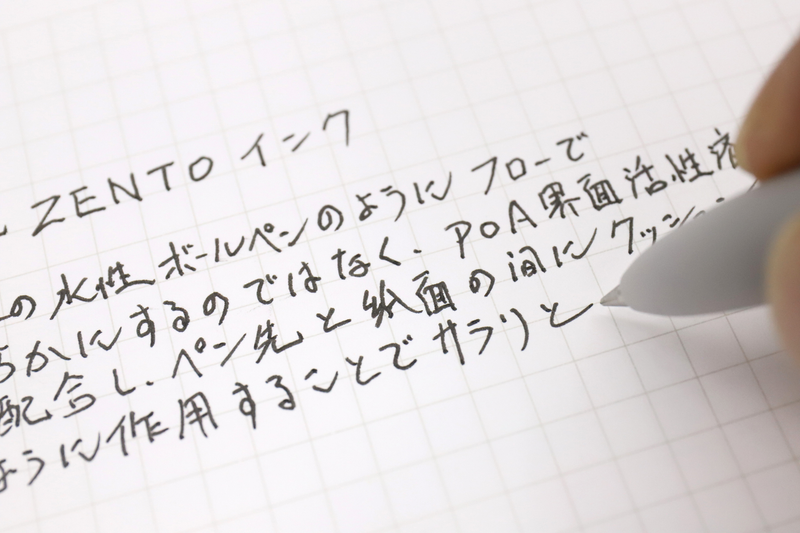 ZENTO インク
の水性ボールペンのようにフローで
らかにするのではなく、POA界面活性
配合し、ペン先と紙面の間にクッション
ように作用することでサラリと